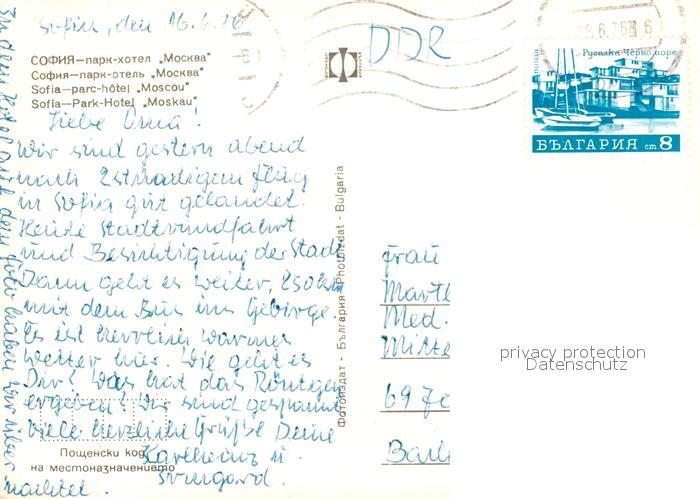 Sofia, den 16.6.76
СОФИЯ—парк-хотел „Москва"
София—парк-отель „Москва"
Sofia—parc-hôtel „Moscou"
Sofia—Park-Hotel „Moskau"
Liebe Oma!
Wir sind gestern abend
nach 2stündigem Flug
in Sofia gut gelandet.
Heute Stadtrundfahrt
und Besichtigung der Stadt.
Dann geht es weiter, 250 km
mit dem Bus ins Gebirge.
Es ist herrlich warmes
Wetter hier. Wie geht es
Dir? Was hat das Röntgen
ergeben? Wir sind gespannt
Viele herzliche Grüße Deine
Karlheinz u.
Irmgard.
In dem Hotel auf dem Foto haben wir über
nachtet.
Пощенски код
на местоназначението
Фотоиздат - България - Photoizdat - Bulgaria
DDR
поща Русалка Черно море
БЪЛГАРИЯ ст 8
6.76 6
Frau
Marth
Med.
Mitte
69 Je
privacy protection
Datenschutz